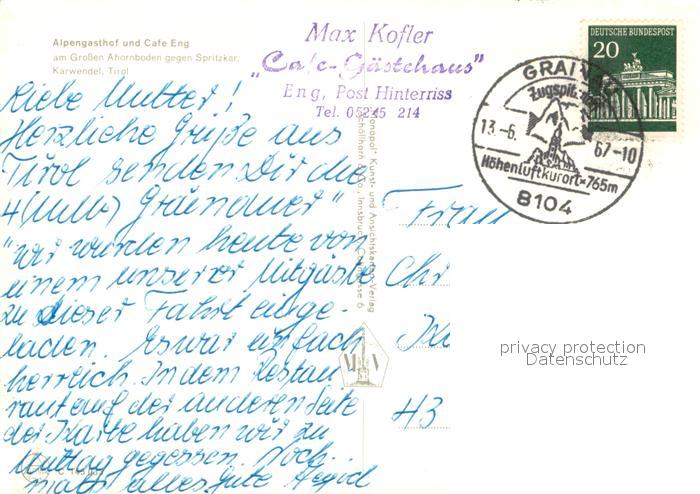 Alpengasthof und Cafe Eng
am Großen Ahornboden gegen Spritzkar,
Karwendel, Tirol
Max Kofler
„Cafe-Gästehaus"
Eng, Post Hinterriss
Tel. 05245 214
20 DEUTSCHE BUNDESPOST
GRAINAU
Zugspitz
13.-6. 67-10
Höhenluftkurort=765m
8104
Liebe Mutter!
Herzliche Grüße aus
Tirol senden Dir die
4
"Wir wurden heute von
einem unserer Mitgäste
zu dieser Fahrt einge-
laden. Es war einfach
herrlich. In dem Restau
rant auf der anderen Seite
der Karte haben wir zu
Mittag gegessen. Noch
mals alles Gute
Frau
Chr
43
"Monopol" Kunst- und Ansichtskarten-Verlag
Innsbruck
M V
privacy protection
Datenschutz